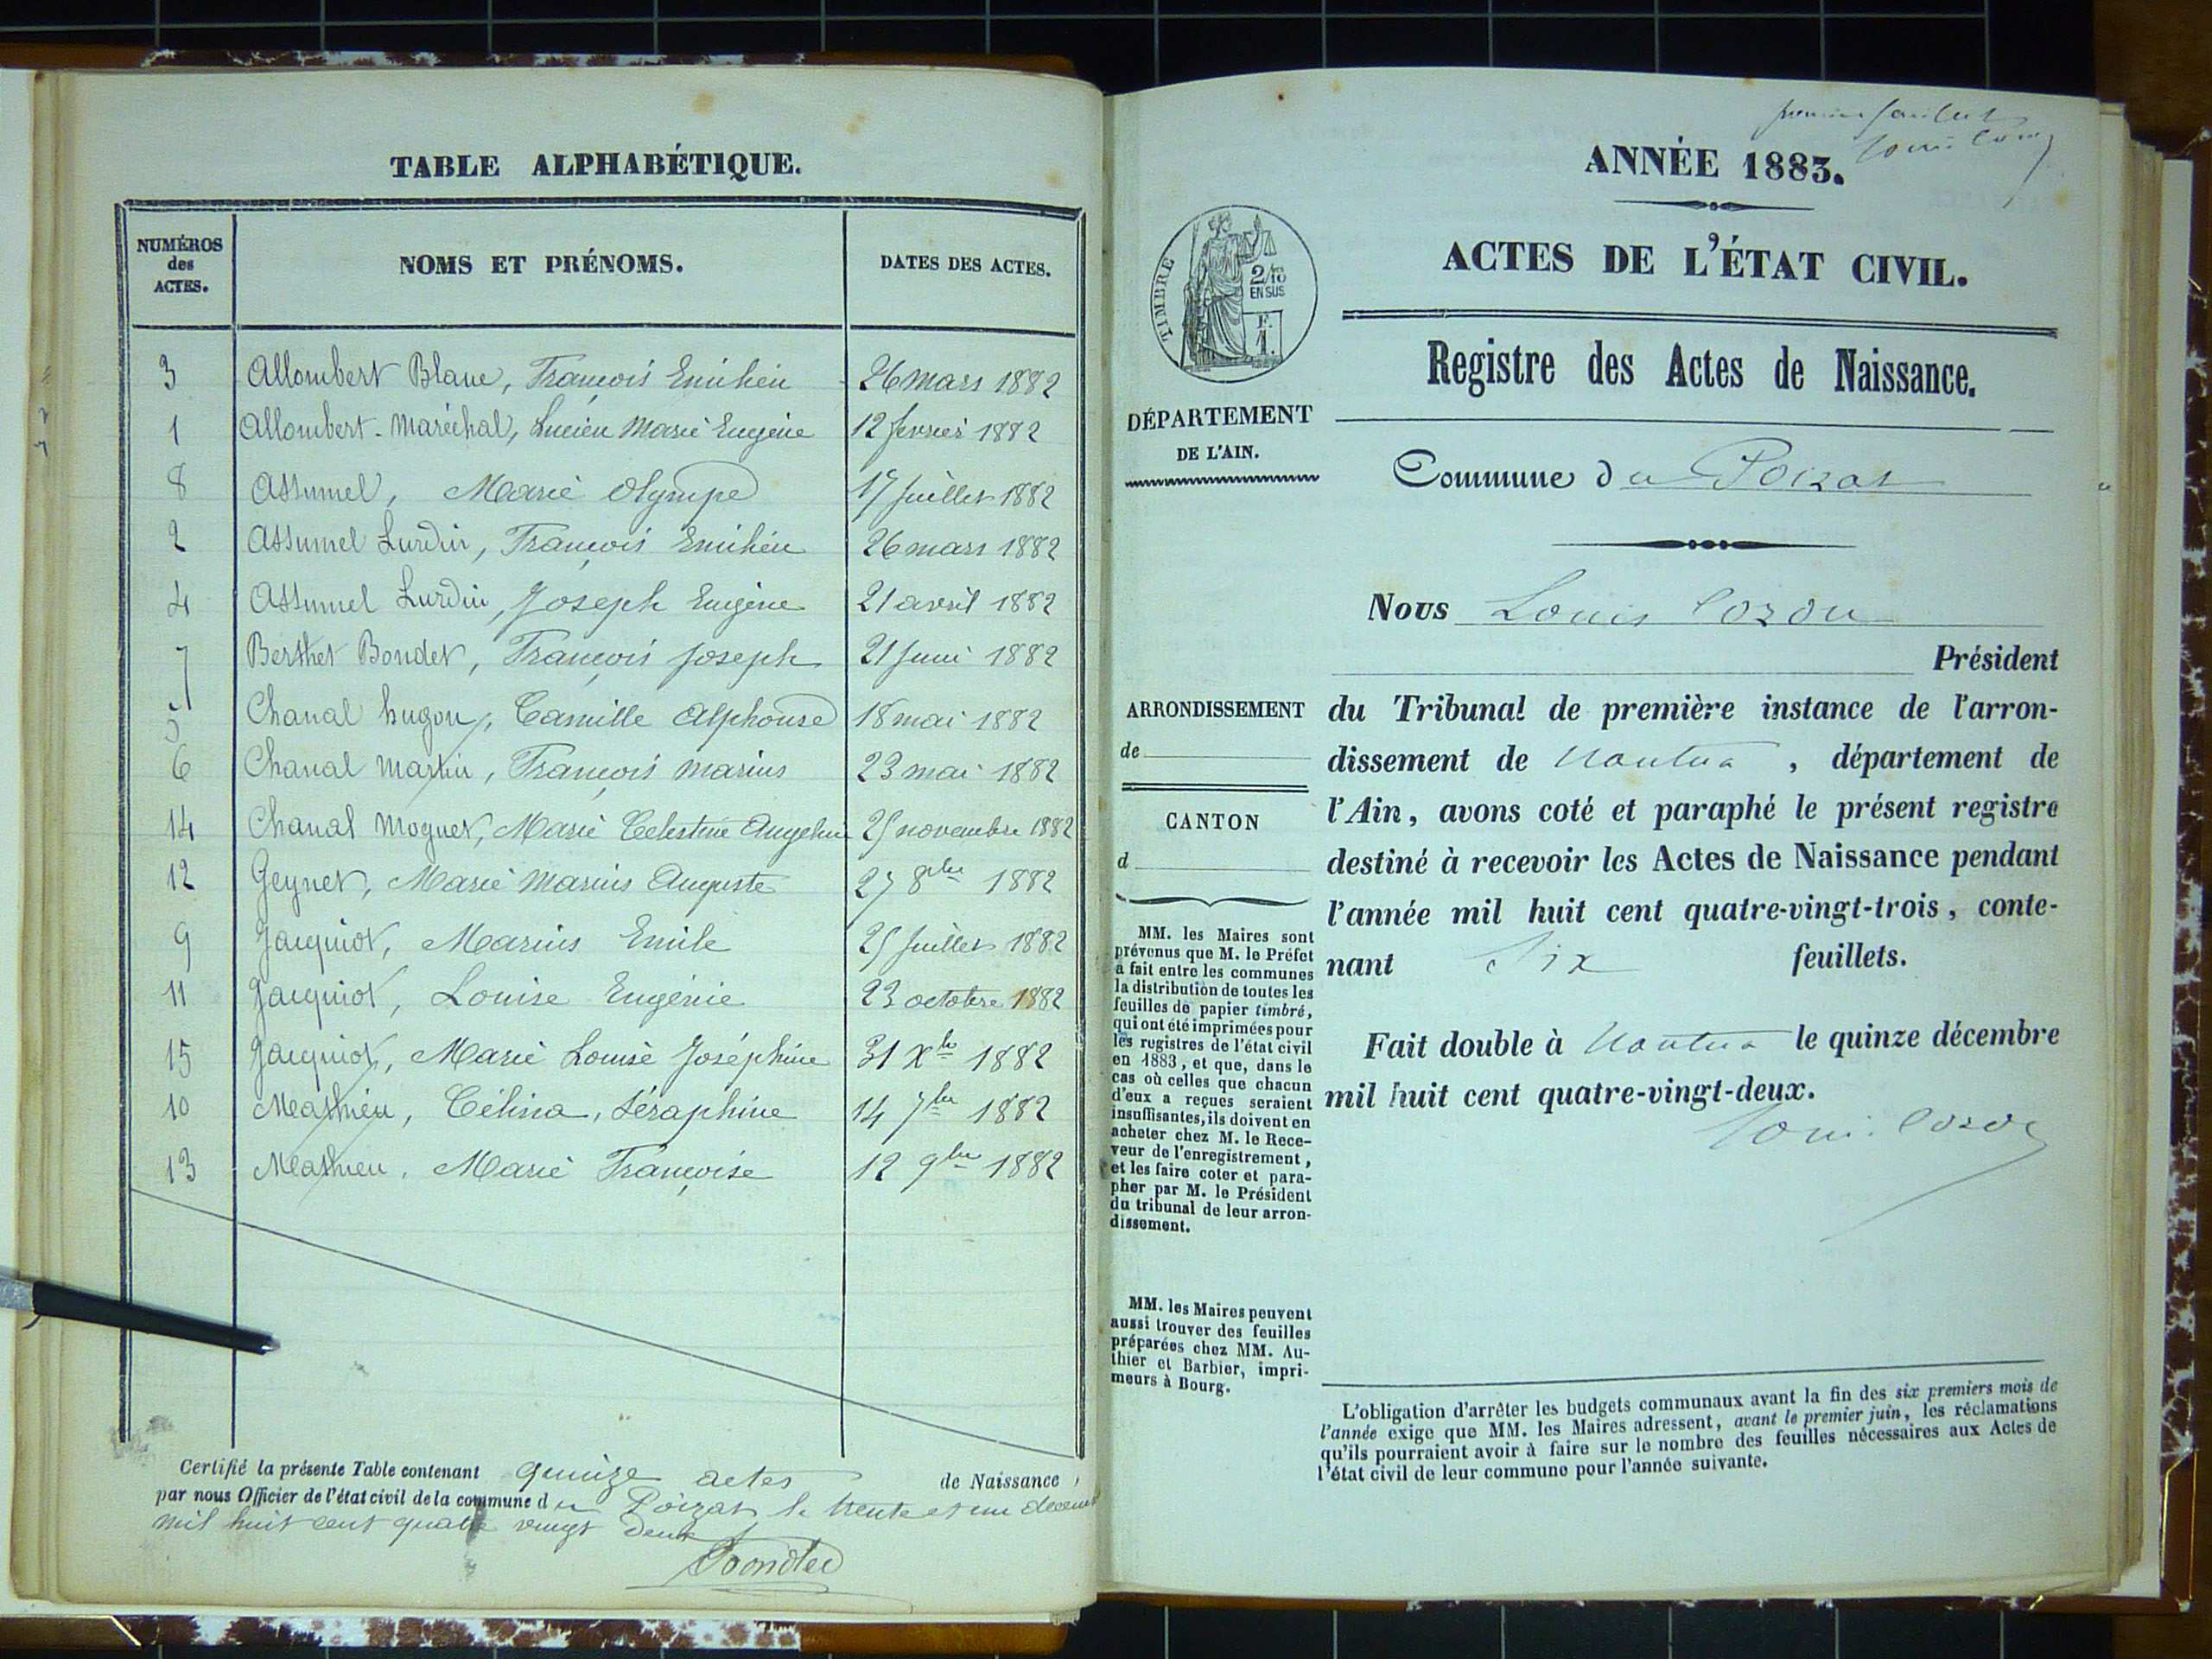 TABLE ALPHABÉTIQUE.
NUMÉROS des ACTES.
NOMS ET PRÉNOMS.
DATES DES ACTES.
3 Allombert Blanc, François Emilien 26 mars 1882
1 Allombert-Maréchal, Lucien Marie Eugène 12 février 1882
8 Assumel, Marie Olympe 17 Juillet 1882
2 Assumel Lurdin, François Emilien 26 mars 1882
4 Assumel Lurdin, Joseph Eugène 21 avril 1882
7 Berthet Bondet, François Joseph 21 Juin 1882
5 Chanal hugon, Camille Alphonse 18 mai 1882
6 Chanal Martin, François Marius 23 mai 1882
14 Chanal Moguet, Marie Celestine 25 novembre 1882
12 Geynet, Marie Marius Auguste 27 8bre 1882
9 Jacquiot, Marius Emile 25 Juillet 1882
11 Jacquiot, Louise Eugénie 23 octobre 1882
15 Jacquiot, Marie Louise Joséphine 31 Xbre 1882
10 Mathieu, Célina, Séraphine 14 7bre 1882
13 Mathieu, Marie Françoise 12 9bre 1882
Certifié la présente Table contenant quinze actes de Naissance,
par nous Officier de l'état civil de la commune du Poizat le trente et un decemb
mil huit cent quatre vingt deux
premier feuillet
ANNÉE 1883.
ACTES DE L'ÉTAT CIVIL.
TIMBRE
2/10
EN SUS
F.
1.
Registre des Actes de Naissance.
DÉPARTEMENT
DE L'AIN.
Commune du Poizat
Nous Louis Cozon
Président
ARRONDISSEMENT
de
CANTON
d
du Tribunal de première instance de l'arron-
dissement de Nantua, département de
l'Ain, avons coté et paraphé le présent registre
destiné à recevoir les Actes de Naissance pendant
l'année mil huit cent quatre-vingt-trois, conte-
nant Six feuillets.
Fait double à Nantua le quinze décembre
mil huit cent quatre-vingt-deux.
Louis Cozon
MM. les Maires sont
prévenus que M. le Préfet
a fait entre les communes
la distribution de toutes les
feuilles de papier timbré,
qui ont été imprimées pour
les registres de l'état civil
en 1883, et que, dans le
cas où celles que chacun
d'eux a reçues seraient
insuffisantes, ils doivent en
acheter chez M. le Rece-
veur de l'enregistrement,
et les faire coter et para-
pher par M. le Président
du tribunal de leur arron-
dissement.
MM. les Maires peuvent
aussi trouver des feuilles
préparées chez MM. Au-
thier et Barbier, impri-
meurs à Bourg.
L'obligation d'arrêter les budgets communaux avant la fin des six premiers mois de
l'année exige que MM. les Maires adressent, avant le premier juin, les réclamations
qu'ils pourraient avoir à faire sur le nombre des feuilles nécessaires aux Actes de
l'état civil de leur commune pour l'année suivante.